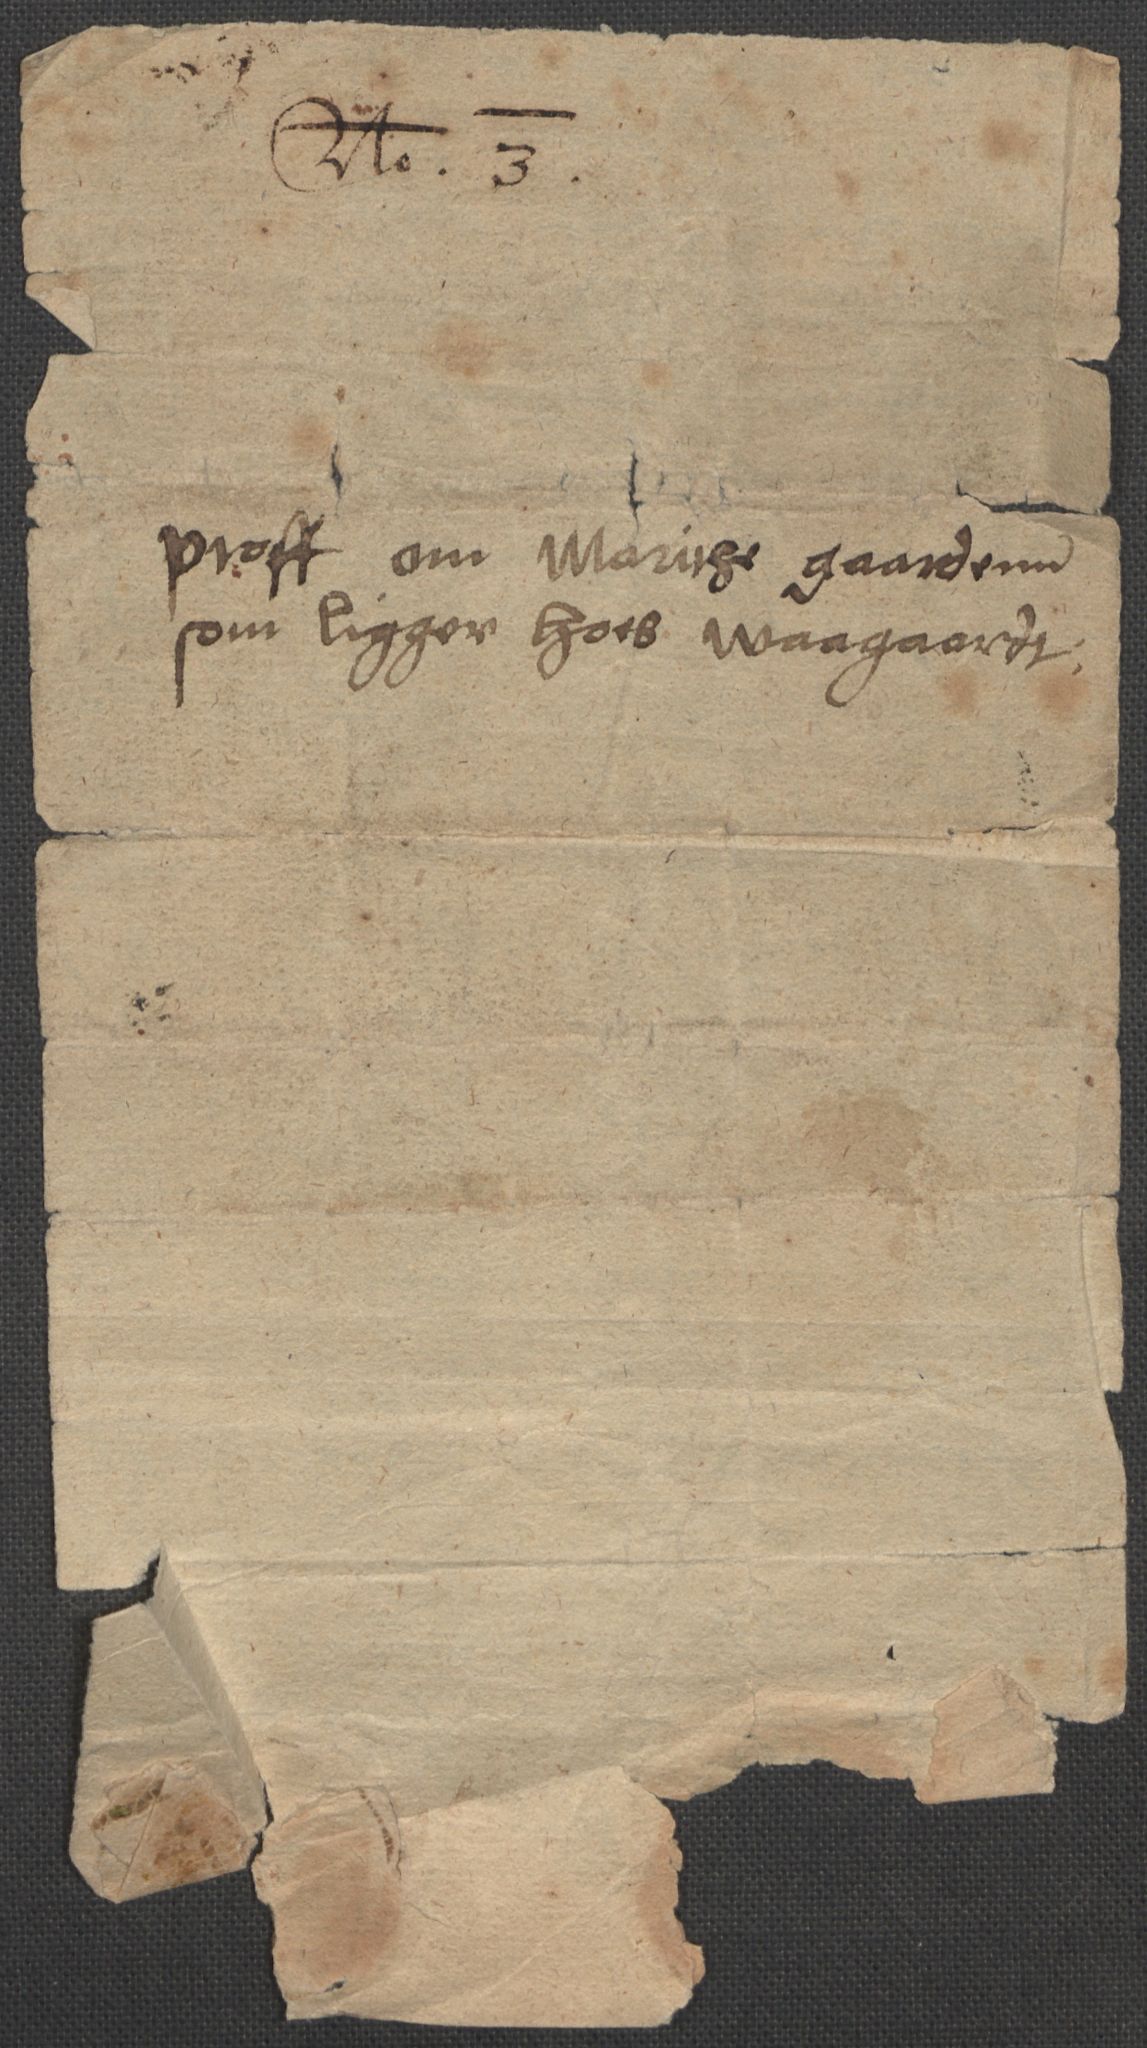 No. 3.
proff om Marithe gaardenn
som ligger hoes Waagaardt.